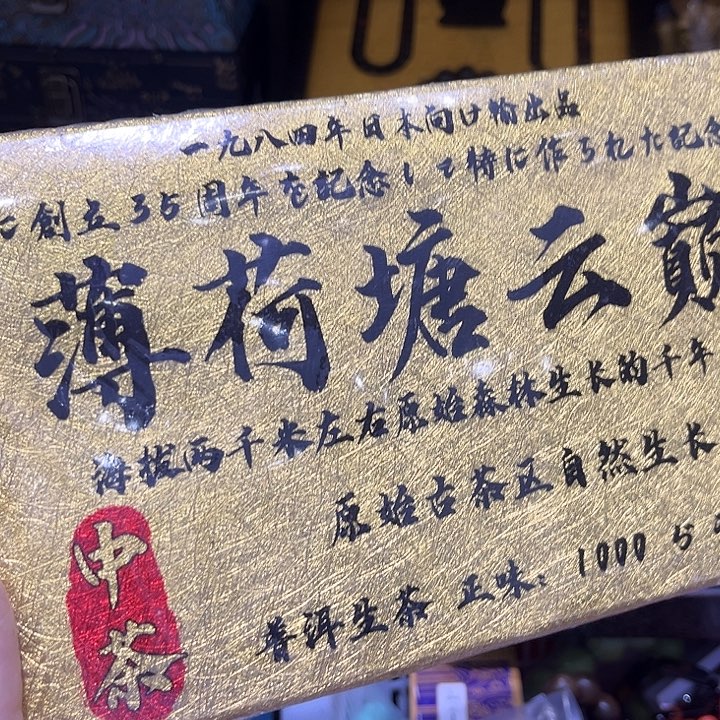 一九八四年日本向け輸出品
に創立35周年を記念して特に作られた記念
薄荷塘云巅
海拔两千米左右原始森林生长的千年
原始古茶区自然生长
普洱生茶 正味: 1000 ぢ
中茶